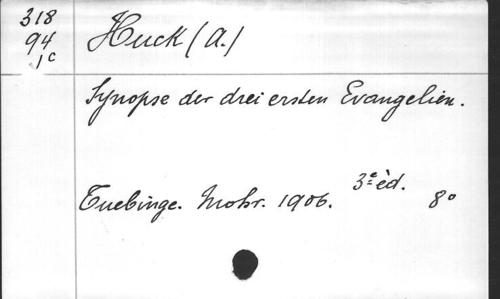 318
94
1c
Huck (A.)
Synopse der drei ersten Evangelien.
Tuebinge. Mohr. 1906. 3e éd. 8°